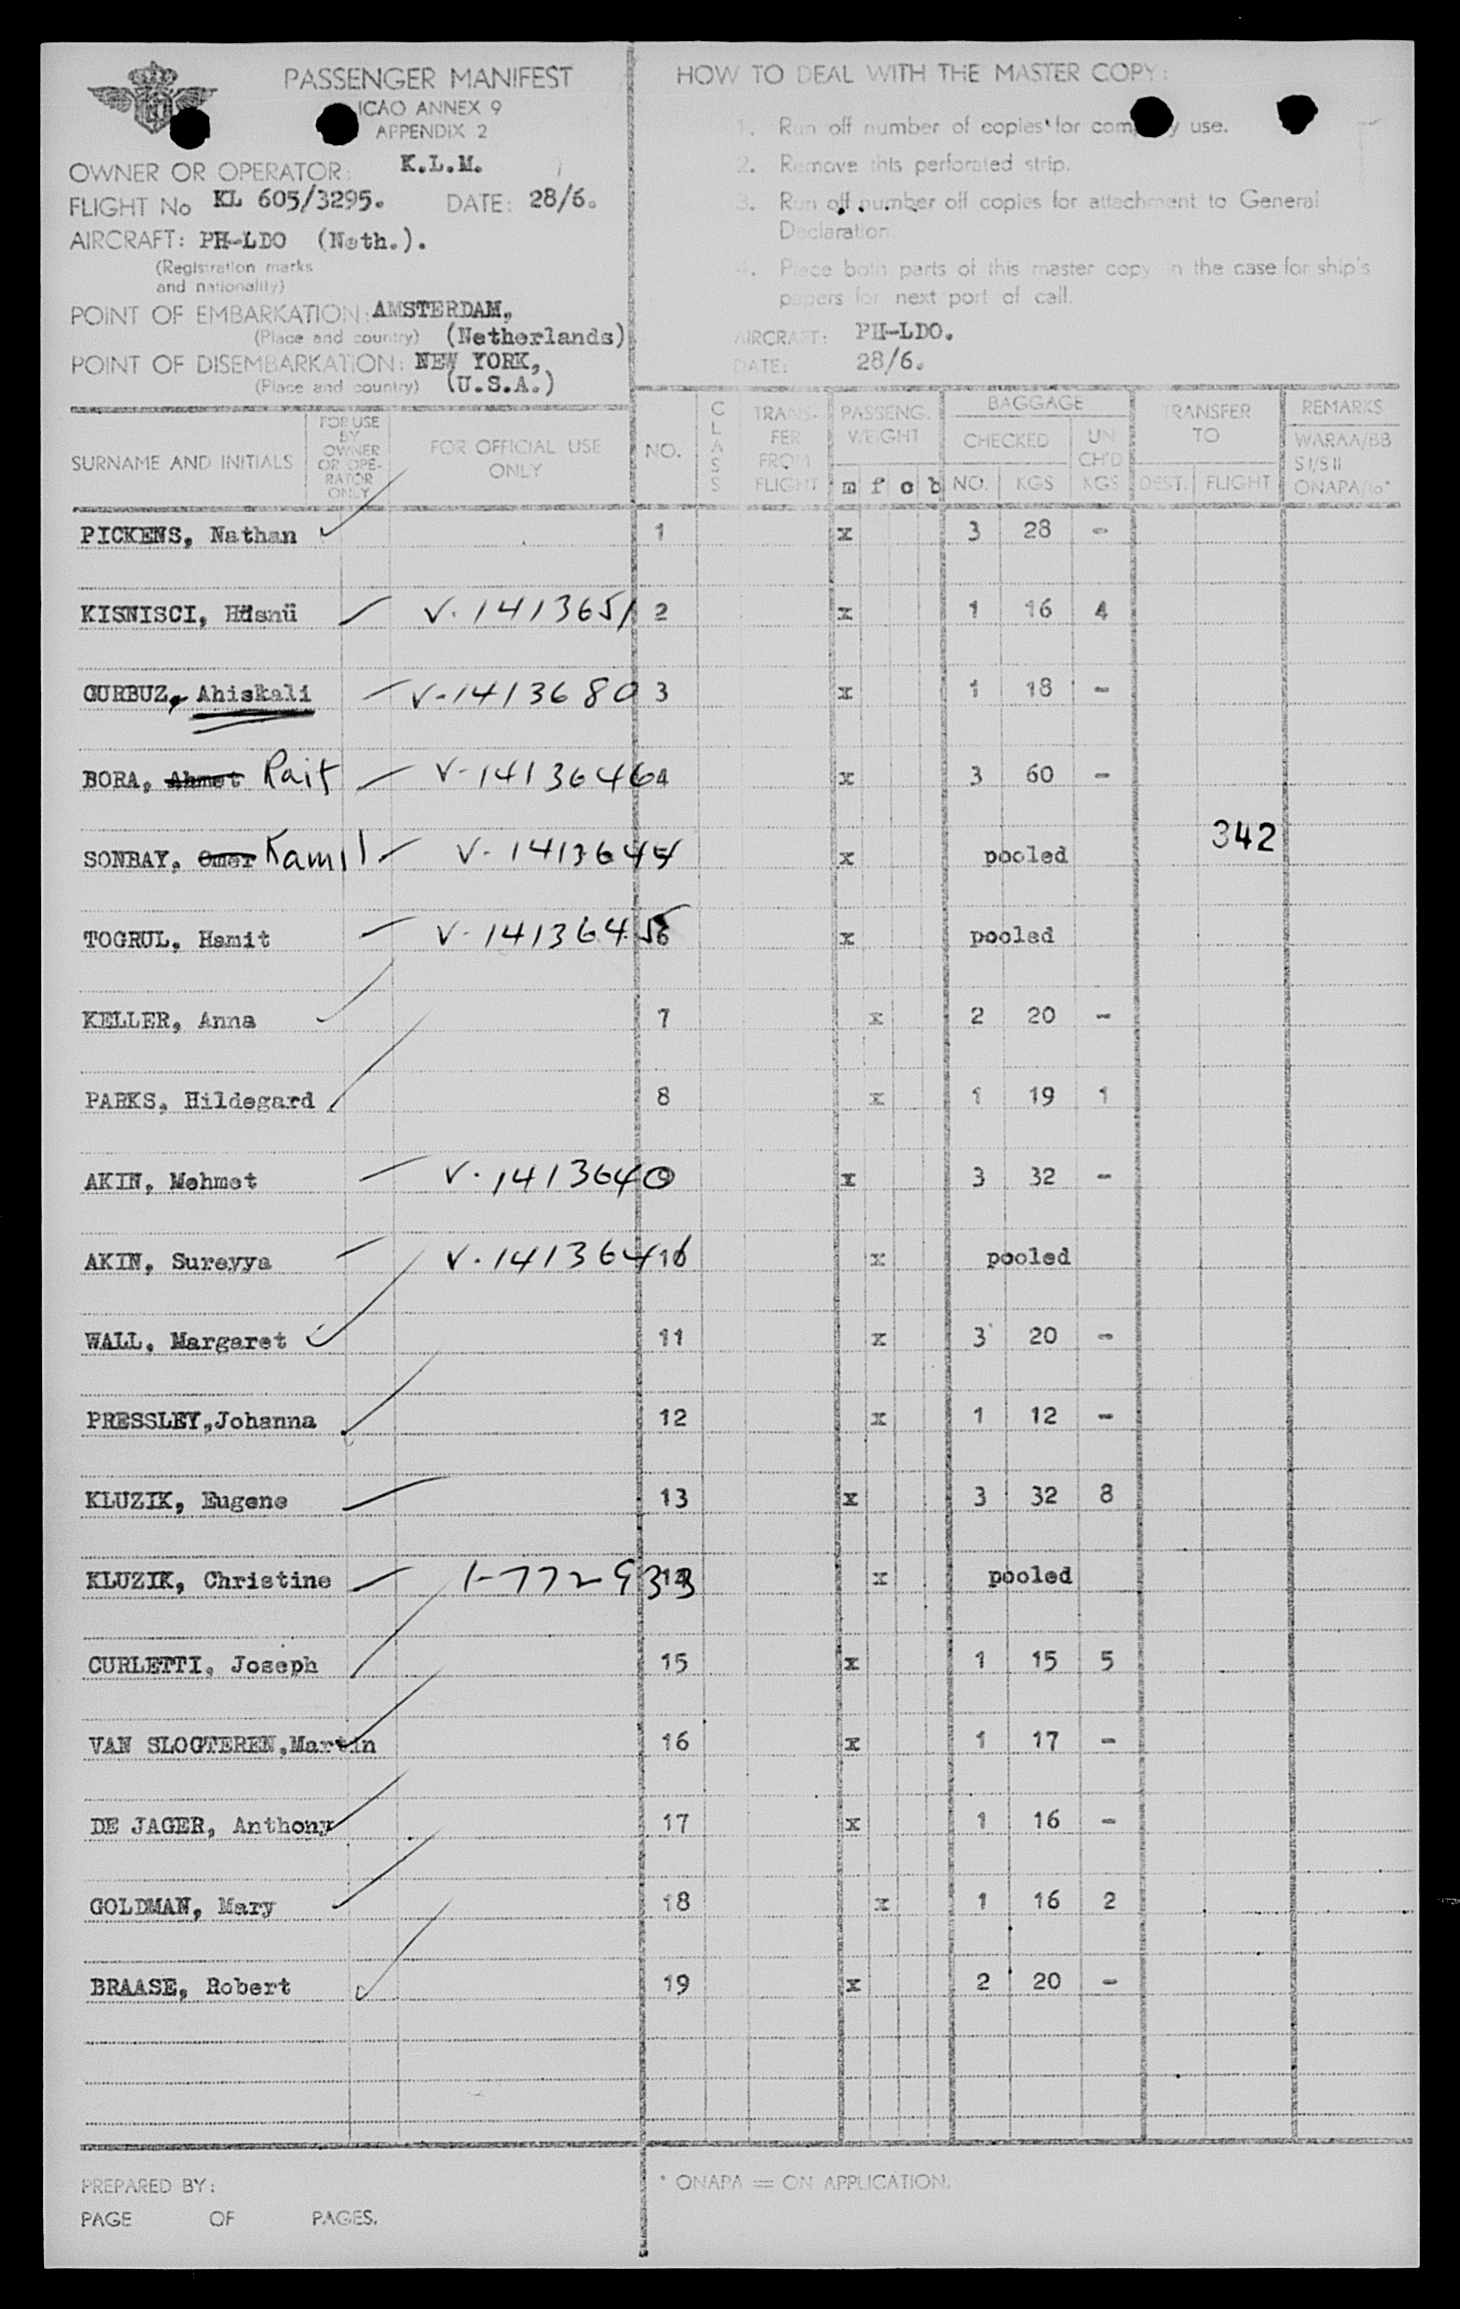 PASSENGER MANIFEST
ICAO ANNEX 9
APPENDIX 2
OWNER OR OPERATOR: K.L.M.
FLIGHT No KL 605/3295. DATE: 28/6.
AIRCRAFT: PH-LDO (Neth.).
(Registration marks
and nationality)
POINT OF EMBARKATION: AMSTERDAM,
(Place and country) (Netherlands)
POINT OF DISEMBARKATION: NEW YORK,
(Place and country) (U.S.A.)
HOW TO DEAL WITH THE MASTER COPY:
1. Run off number of copies for company use.
2. Remove this perforated strip.
3. Run off number off copies for attachment to General
Declaration
4. Place both parts of this master copy in the case for ship's
papers for next port of call.
AIRCRAFT: PH-LDO.
DATE: 28/6.
SURNAME AND INITIALS FOR USE BY OWNER OR OPE-RATOR ONLY FOR OFFICIAL USE ONLY NO. CLASS TRANS-FER FROM FLIGHT PASSENG. WEIGHT m f c b BAGGAGE CHECKED NO. KGS UN CH'D KGS TRANSFER TO DEST. FLIGHT REMARKS WARAA/BB S I/S II ONAPA/to*
PICKENS, Nathan 1 x 3 28 -
KISNISCI, Hüsnü V-1413651 2 x 1 16 4
GURBUZ, Ahiskali V-1413680 3 x 1 18 -
BORA, Ahmet Raif V-1413646 4 x 3 60 -
SONBAY, Omer Kamil V-1413644 x pooled 342
TOGRUL, Hamit V-1413645 6 x pooled
KELLER, Anna 7 x 2 20 -
PARKS, Hildegard 8 x 1 19 1
AKIN, Mehmet V-1413640 9 x 3 32 -
AKIN, Sureyya V-1413641 10 x pooled
WALL, Margaret 11 x 3 20 -
PRESSLEY, Johanna 12 x 1 12 -
KLUZIK, Eugene 13 x 3 32 8
KLUZIK, Christine 1-772933 14 x pooled
CURLETTI, Joseph 15 x 1 15 5
VAN SLOGTEREN, Martin 16 x 1 17 -
DE JAGER, Anthony 17 x 1 16 -
GOLDMAN, Mary 18 x 1 16 2
BRAASE, Robert 19 x 2 20 -
PREPARED BY:
PAGE OF PAGES.
* ONAPA = ON APPLICATION.